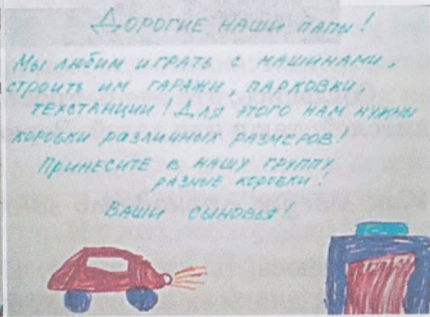 Дорогие наши папы!
Мы любим играть с машинами,
строить им гаражи, парковки,
техстанции! Для этого нам нужны
коробки различных размеров!
Принесите в нашу группу
разные коробки!
Ваши сыновья!